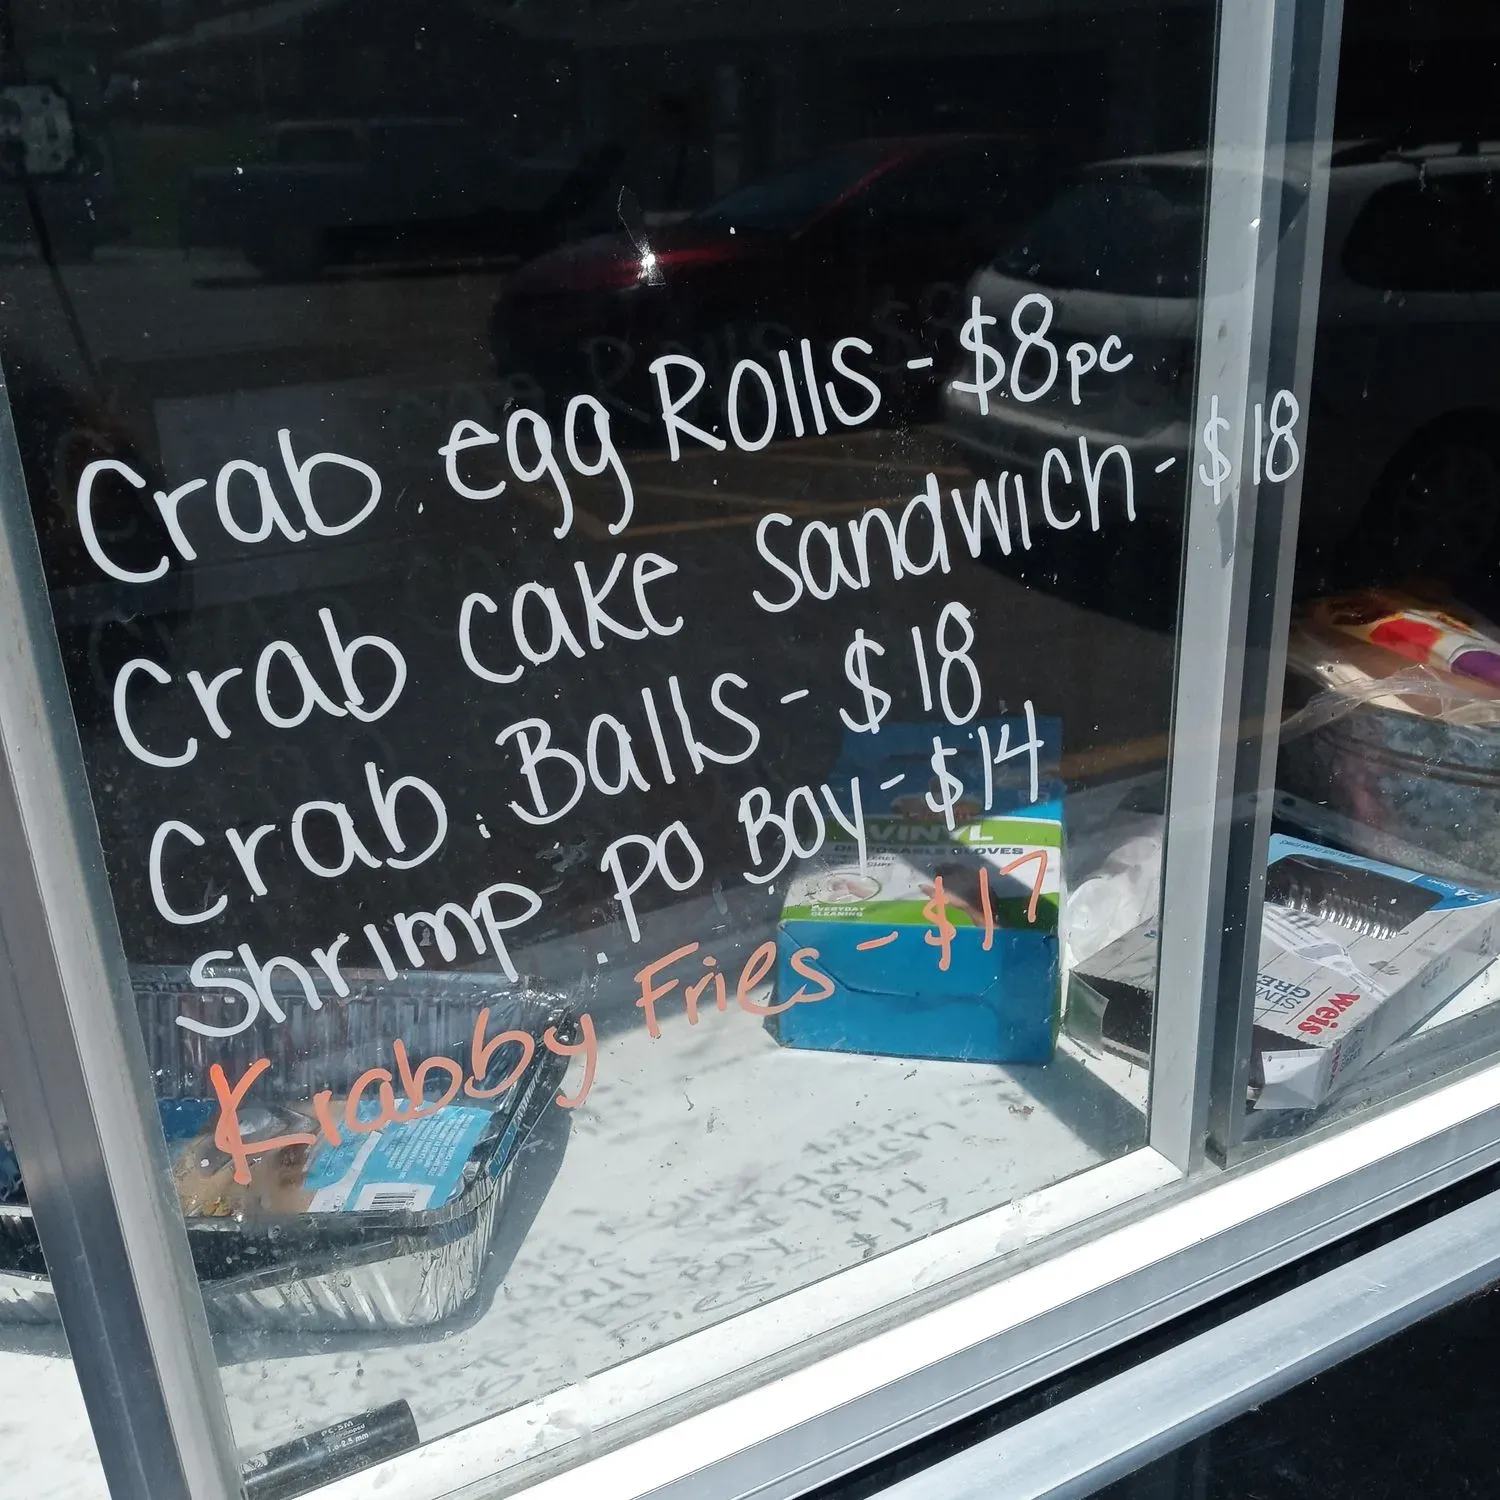 Crab egg Rolls - $8pc
Crab cake Sandwich - $18
Crab Balls - $18
Shrimp Po Boy - $14
Krabby Fries - $17
VINYL
DISPOSABLE GLOVES
EVERYDAY
CLEANING
Weis
CLEAR
PC-5M
1.8-2.5 mm